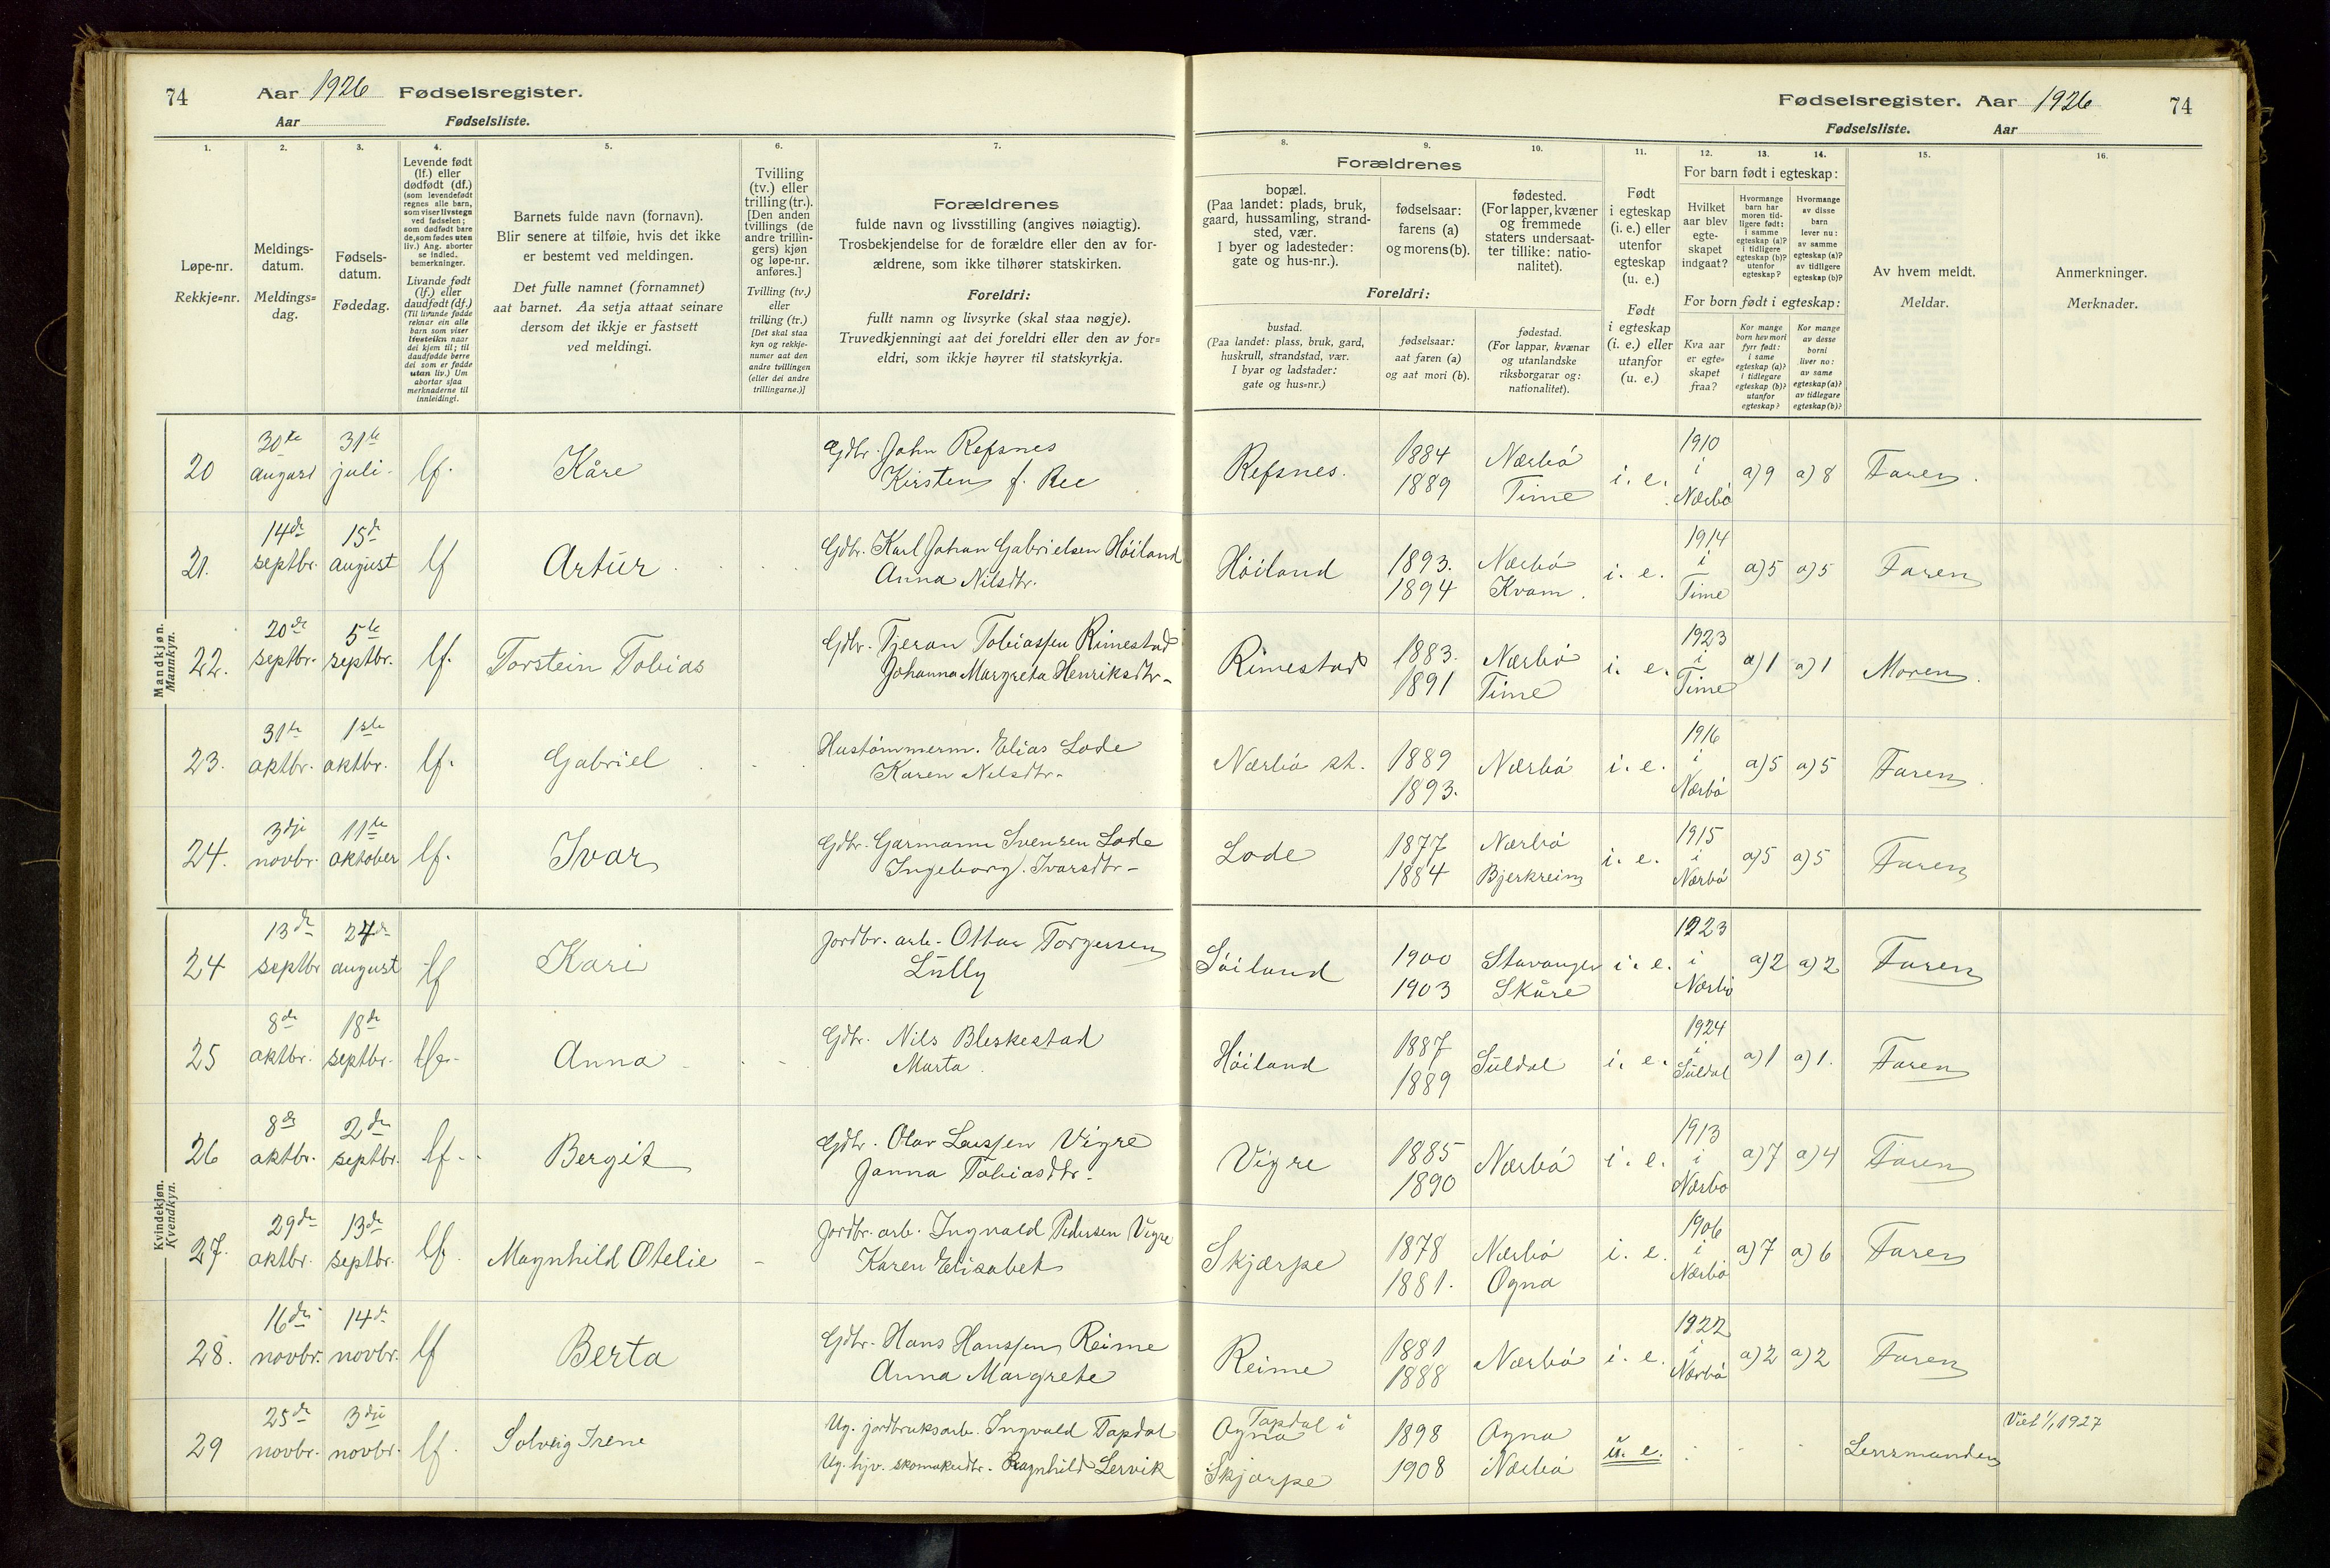 74 Aar 1926 Fødselsregister.
Aar Fødselsliste.
Fødselsregister. Aar 1926 74
Fødselsliste. Aar
1. 2. 3. 4. 5. 6. 7.
Løpe-nr.
Rekkje=nr.
Meldings-
datum.
Meldings=
dag.
Fødsels-
datum.
Fødedag.
Levende født
(lf.) eller
dødfødt (df.)
(som levendefødt
regnes alle barn,
som viser livstegn
ved fødselen;
som dødfødt bare
de, som fødes uten
liv.) Ang. aborter
se indled.
bemerkninger.
Livande født
(lf.) eller
daudfødt (df.)
(Til livande fødde
reknar ein alle
barn som viser
livsteikn naar
dei kjem til; til
daudfødde berre
dei som er fødde
utan liv.) Um
abortar sjaa
merknaderne til
innleidingi.
Barnets fulde navn (fornavn).
Blir senere at tilføie, hvis det ikke
er bestemt ved meldingen.
Det fulle namnet (fornamnet)
aat barnet. Aa setja attaat seinare
dersom det ikkje er fastsett
ved meldingi.
Tvilling
(tv.) eller
trilling (tr.).
[Den anden
tvillings (de
andre trillin-
gers) kjøn
og løpe-nr.
anføres.]
Tvilling (tv.)
eller
trilling (tr.)
[Det skal staa
kyn og rekkje-
numer aat den
andre tvillingen
(eller dei andre
trillingarne.)]
Forældrenes
fulde navn og livsstilling (angives nøiagtig).
Trosbekjendelse for de forældre eller den av for-
ældrene, som ikke tilhører statskirken.
Foreldri:
fullt namn og livsyrke (skal staa nøgje).
Truvedkjenningi aat dei foreldri eller den av for=
eldri, som ikkje høyrer til statskyrkja.
8. 9. 10. 11. 12. 13. 14. 15. 16.
Forældrenes
bopæl.
(Paa landet: plads, bruk,
gaard, hussamling, strand-
sted, vær.
I byer og ladesteder:
gate og hus-nr.).
fødselsaar:
farens (a)
og morens (b).
fødested.
(For lapper, kvæner
og fremmede
staters undersaat-
ter tillike: natio-
nalitet).
Foreldri:
bustad.
(Paa landet: plass, bruk, gard,
huskrull, strandstad, vær.
I byar og ladstader:
gate og hus=nr.)
fødselsaar:
aat faren (a)
og aat mori (b).
fødestad.
(For lappar, kvænar
og utanlandske
riksborgarar og:
nationalitet).
Født
i egteskap
(i. e.) eller
utenfor
egteskap
(u. e.)
Født
i egteskap
(i. e.) eller
utanfor
(u. e.)
For barn født i egteskap:
Hvilket
aar blev
egte-
skapet
indgaat?
Hvormange
barn har
moren tid-
ligere født:
i samme
egteskap (a)?
i tidligere
egteskap (b)?
utenfor
egteskap?
Hvormange
av disse
barn
lever nu:
av samme
egteskap (a)?
av tidligere
egteskap (b)?
For born født i egteskap:
Kva aar
er egte=
skapet
fraa?
Kor mange
born hev mori
fyrr født:
i same
egteskap (a)?
i tidlegare
egteskap (b)?
utanfor
egteskap?
Kor mange
av desse
borni
liver no:
av same
egteskap (a)?
av tidlegare
egteskap (b)?
Av hvem meldt.
Meldar.
Anmerkninger.
Merknader.
Mandkjøn.
Mannkyn.
20 30te august 31te juli. lf. Kåre Gdbr. John Refsnes Kirsten f. Ree Refsnes. 1884 1889 Nærbö Time i. e. 1910 i Nærbö a) 9 a) 8 Faren.
21. 14de septbr. 15de august lf Artur Gdbr. Karl Johan Gabrielsen Höiland Anna Nilsdtr. Höiland 1893. 1894 Nærbö Kvam. i. e. 1914 i Time a) 5 a) 5 Faren
22. 20de septbr. 5te septbr. lf. Torstein Tobias Gdbr. Tjeran Tobiassen Rimestad Johanna Margreta Henriksdtr. Rimestad 1883. 1891 Nærbö Time i. e. 1923 i Time a) 1 a) 1 Moren.
23. 31te oktbr. 1ste oktbr. lf. Gabriel Hustömmerm. Elias Lode Karen Nilsdtr. Nærbö st. 1889 1893. Nærbö i. e. 1916 i Nærbö a) 5 a) 5 Faren.
24. 3dje novbr. 11te oktober lf. Ivar Gdbr. Garmann Svensen Lode Ingeborg Ivarsdtr. Lode 1877 1884 Nærbö Bjerkreim i. e. 1915 i Nærbö a) 5 a) 5 Faren
Kvindekjøn.
Kvendkyn.
24 13de septbr 24de august lf Kari Jordbr. arb. Ottar Torgersen Lully Söiland 1900 1903 Stavanger Skåre i. e. 1923 i Nærbö a) 2 a) 2 Faren
25 8de oktbr. 18de septbr. Anna Gdbr. Nils Bleskestad Marta. Höiland 1887 1889 Suldal i. e. 1924 i Suldal a) 1 a) 1. Faren
26 8de oktbr. 2den septbr. lf. Bergit Gdbr. Olav Larssen Vigre Janna Tobiasdtr. Vigre 1885 1890 Nærbö i. e. 1913 i Nærbö a) 7 a) 4 Faren
27. 29de oktbr. 13de septbr. lf. Magnhild Otelie Jordbr. arb. Ingvald Pedersen Vigre Karen Elisabet Skjærpe 1878 1881. Nærbö Ogna i. e. 1906 i Nærbö a) 7 a) 6 Faren
28. 16de novbr. 14de novbr. lf Berta Gdbr. Hans Hanssen Reime Anna Margrete Reime 1881 1888 Nærbö i. e. 1922 i Nærbö a) 2 a) 2 Faren
29 25de novbr. 3dje novbr. lf. Solveig Irene Ug. jordbruksarb. Ingvald Tapdal Ug. hjv. skomakerdtr. Ragnhild Lervik Tapdal i Ogna Skjærpe 1898 1908 Ogna Nærbö u. e. Lensmanden Viet 1/1 1927